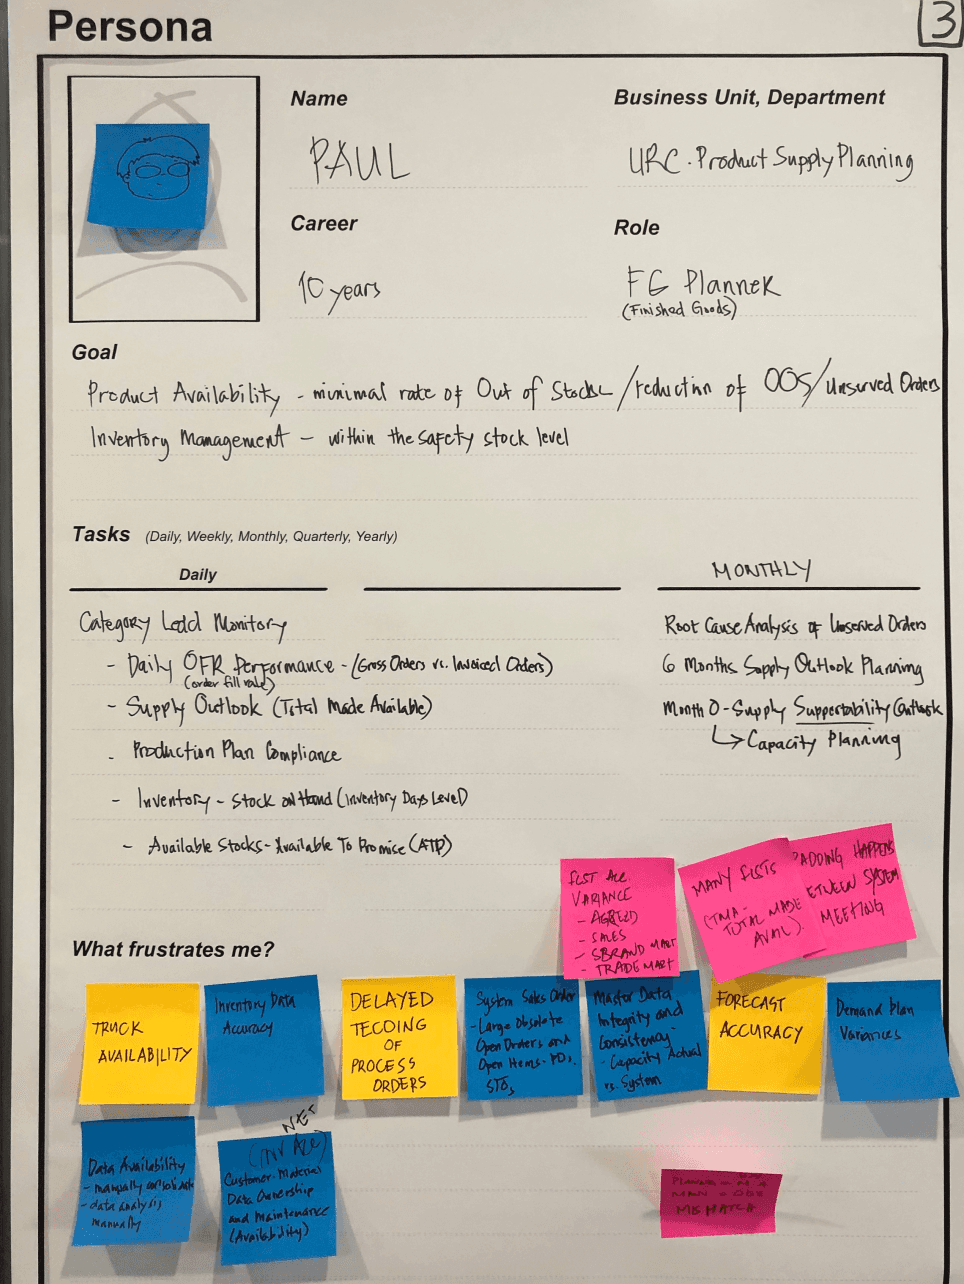 Persona
3
Name
PAUL
Business Unit, Department
URC - Product Supply Planning
Career
10 years
Role
FG Planner
(Finished Goods)
Goal
Product Availability - minimal rate of Out of Stocks / reduction of OOS / Unserved Orders
Inventory Management - within the safety stock level
Tasks (Daily, Weekly, Monthly, Quarterly, Yearly)
Daily
Category Ledd Monitory
- Daily OFR Performance - (Gross Orders vs. Invoiced Orders)
(order fill rate)
- Supply Outlook (Total Made Available)
- Production Plan Compliance
- Inventory - Stock on Hand (Inventory Days Level)
- Available Stocks - Available To Promise (ATP)
MONTHLY
Root Cause Analysis of Unserved Orders
6 Months Supply Outlook Planning
Month 0 - Supply Supportability Outlook
↳ Capacity Planning
What frustrates me?
FCST ALL
VARIANCE
- AGREED
- SALES
- TRADE MART
MANY FCSTS
(TMA-
TOTAL MADE
AVAL).
PADDING HAPPENS
BETWEEN SYSTEM
MEETING
TRUCK
AVAILABILITY
Inventory Data
Accuracy
DELAYED
TECOING
OF
PROCESS
ORDERS
System Sales Order
- Large Obsolete
Open Orders and
Open Items - POs,
STOs
Master Data
Integrity and
Consistency -
- Capacity Actual
vs. System
FORECAST
ACCURACY
Demand Plan
Variances
Data Availability
- manually consolidate
- data analysis
manually
Customer-Material
Data Ownership
and Maintenance
(Availability)
MISMATCH